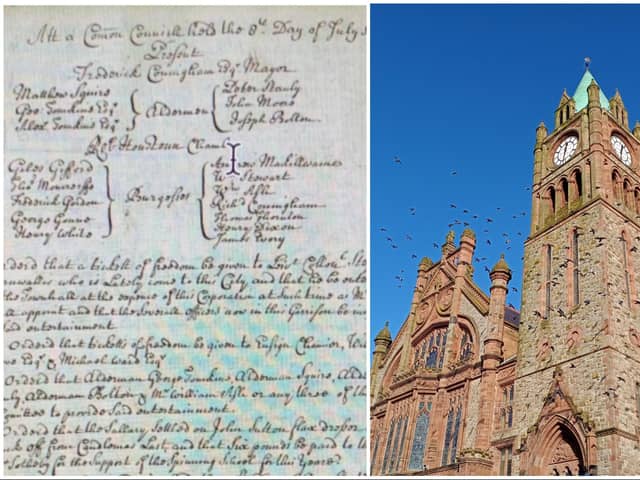 Att a Comon Councill held the 8th Day of July
Present
Frederick Coningham Esqr Mayor
Matthew Squire
Geo: Tomkins Esqr
Alexr Tomkins Esqr
Aldermen
Peter Stanly
John Moore
Joseph Bolton
Robt Houstoun Chamb
Giles Gifford
Frederick Gordon
George Gonne
Henry White
Burgesses
Andrew Mackillwaine
Wm Stewart
Wm Ash
Richd Coningham
Thomas Shouldon
Henry Dixon
James Ivory
rdered that a tickett of freedom be given to
who is Lately come to this City, and that he be
the Townhall at the expence of this Corporation at such time as M
appoint and that the severall officers now in this Garrison be
said entertainment.
Ordered that tickets of freedom be given to Ensign
Esqr & Michael Ward Esqr
Ordered that Alderman George Tomkins, Alderman Squire, Ald
Alderman Bolton & Mr William Ash or any three of th
to provide said entertainment.
rdered that the Sallary settled on John Sutton flax dresser
off from Candlemas Last, and that Six pounds be paid to
for the Support of the Spinning School for this Year